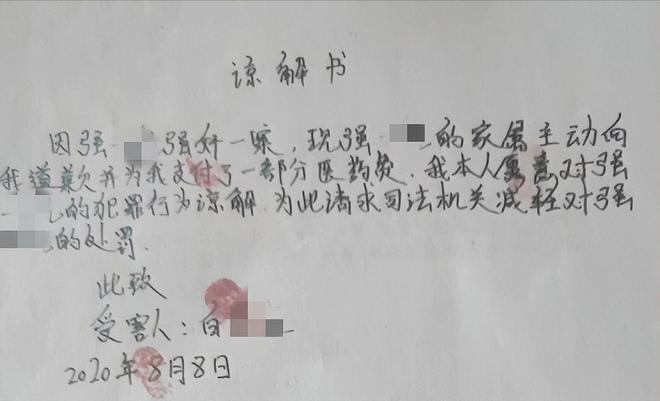 谅解书
因强 强奸一案,现强 的家属主动向
我道歉并为我支付了一部分医药费.我本人愿意对强
的犯罪行为谅解.为此请求司法机关减轻对强
的处罚.
此致
受害人:白
2020年8月8日